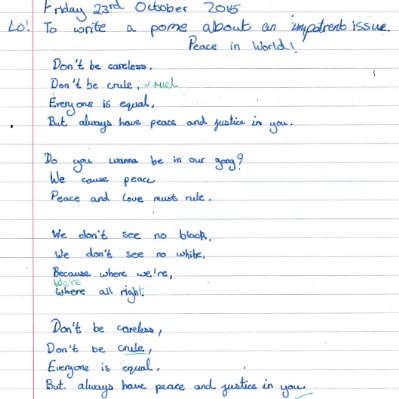 Friday 23rd October 2015
LO: To write a pome about an impotrent issue.
Peace in World!
Don't be careless.
Don't be crule, ruel
Everyone is equal,
But always have peace and justice in you.
Do you wanna be in our gang?
We cause peace
Peace and Love must rule.
We don't see no black,
We don't see no white,
Because where we're,
We're
Where all right.
Don't be careless,
Don't be crule,
Everyone is equal.
But always have peace and justice in you.